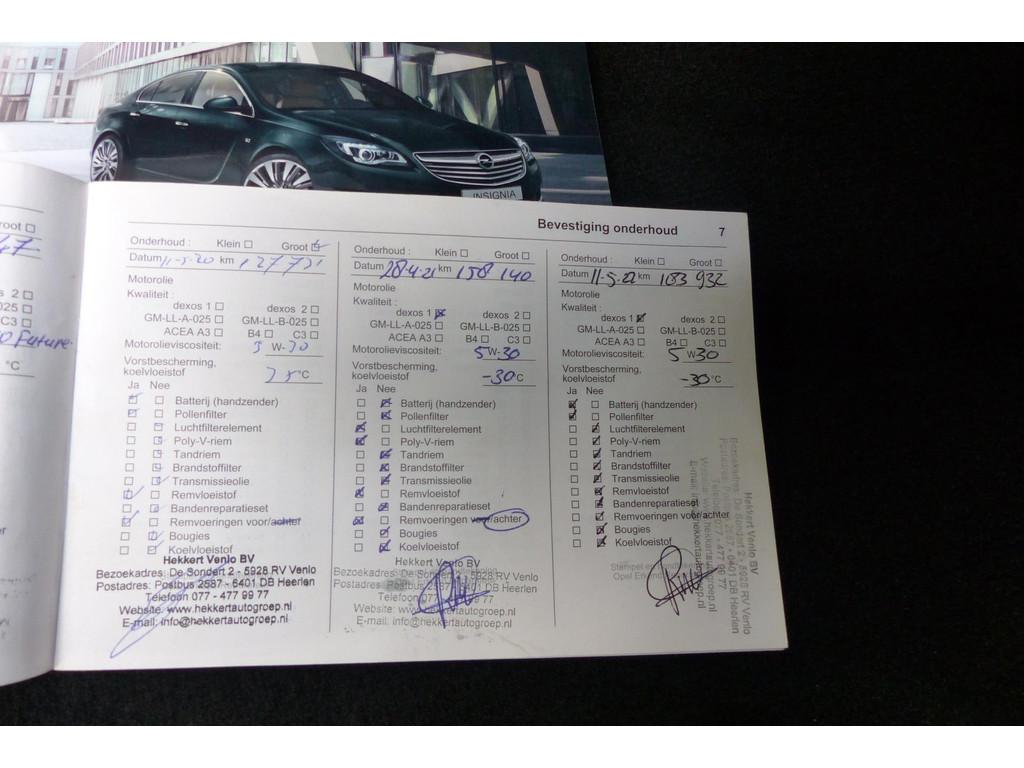 INSIGNIA
Bevestiging onderhoud 7
Onderhoud : Klein ☐ Groot ☑
Datum 11-5-20 km 127731
Motorolie
Kwaliteit :
dexos 1 ☐ dexos 2 ☐
GM-LL-A-025 ☐ GM-LL-B-025 ☐
ACEA A3 ☐ B4 ☐ C3 ☐
Motorolieviscositeit: 5 W-30
Vorstbescherming,
koelvloeistof °C
Ja Nee
☑ ☐ Batterij (handzender)
☑ ☐ Pollenfilter
☐ ☑ Luchtfilterelement
☐ ☑ Poly-V-riem
☐ ☑ Tandriem
☐ ☑ Brandstoffilter
☐ ☑ Transmissieolie
☑ ☐ Remvloeistof
☐ ☑ Bandenreparatieset
☑ ☐ Remvoeringen voor/achter
☐ ☑ Bougies
☐ ☑ Koelvloeistof
Hekkert Venlo BV
Bezoekadres: De Sondert 2 - 5928 RV Venlo
Postadres: Postbus 2587 - 6401 DB Heerlen
Telefoon 077 - 477 99 77
Website: www.hekkertautogroep.nl
E-mail: info@hekkertautogroep.nl
Onderhoud : Klein ☐ Groot ☐
Datum 28-4-21 km 158 140
Motorolie
Kwaliteit :
dexos 1 ☑ dexos 2 ☐
GM-LL-A-025 ☐ GM-LL-B-025 ☐
ACEA A3 ☐ B4 ☐ C3 ☐
Motorolieviscositeit: 5 W-30
Vorstbescherming,
koelvloeistof -30 °C
Ja Nee
☐ ☑ Batterij (handzender)
☐ ☑ Pollenfilter
☑ ☐ Luchtfilterelement
☑ ☐ Poly-V-riem
☐ ☑ Tandriem
☐ ☑ Brandstoffilter
☐ ☑ Transmissieolie
☑ ☐ Remvloeistof
☐ ☑ Bandenreparatieset
☑ ☐ Remvoeringen voor/achter
☐ ☑ Bougies
☐ ☑ Koelvloeistof
Hekkert Venlo BV
Bezoekadres: De Sondert 2 - 5928 RV Venlo
Postadres: Postbus 2587 - 6401 DB Heerlen
Telefoon 077 - 477 99 77
Website: www.hekkertautogroep.nl
E-mail: info@hekkertautogroep.nl
Onderhoud : Klein ☐ Groot ☐
Datum 11-5-22 km 183 932
Motorolie
Kwaliteit :
dexos 1 ☑ dexos 2 ☐
GM-LL-A-025 ☐ GM-LL-B-025 ☐
ACEA A3 ☐ B4 ☐ C3 ☐
Motorolieviscositeit: 5 W30
Vorstbescherming,
koelvloeistof -30 °C
Ja Nee
☑ ☐ Batterij (handzender)
☑ ☐ Pollenfilter
☐ ☑ Luchtfilterelement
☐ ☑ Poly-V-riem
☐ ☑ Tandriem
☐ ☑ Brandstoffilter
☐ ☑ Transmissieolie
☐ ☑ Remvloeistof
☐ ☑ Bandenreparatieset
☐ ☑ Remvoeringen voor/achter
☐ ☑ Bougies
☐ ☑ Koelvloeistof
Hekkert Venlo BV
Bezoekadres: De Sondert 2 - 5928 RV Venlo
Postadres: Postbus 2587 - 6401 DB Heerlen
Telefoon 077 - 477 99 77
Website: www.hekkertautogroep.nl
E-mail: info@hekkertautogroep.nl